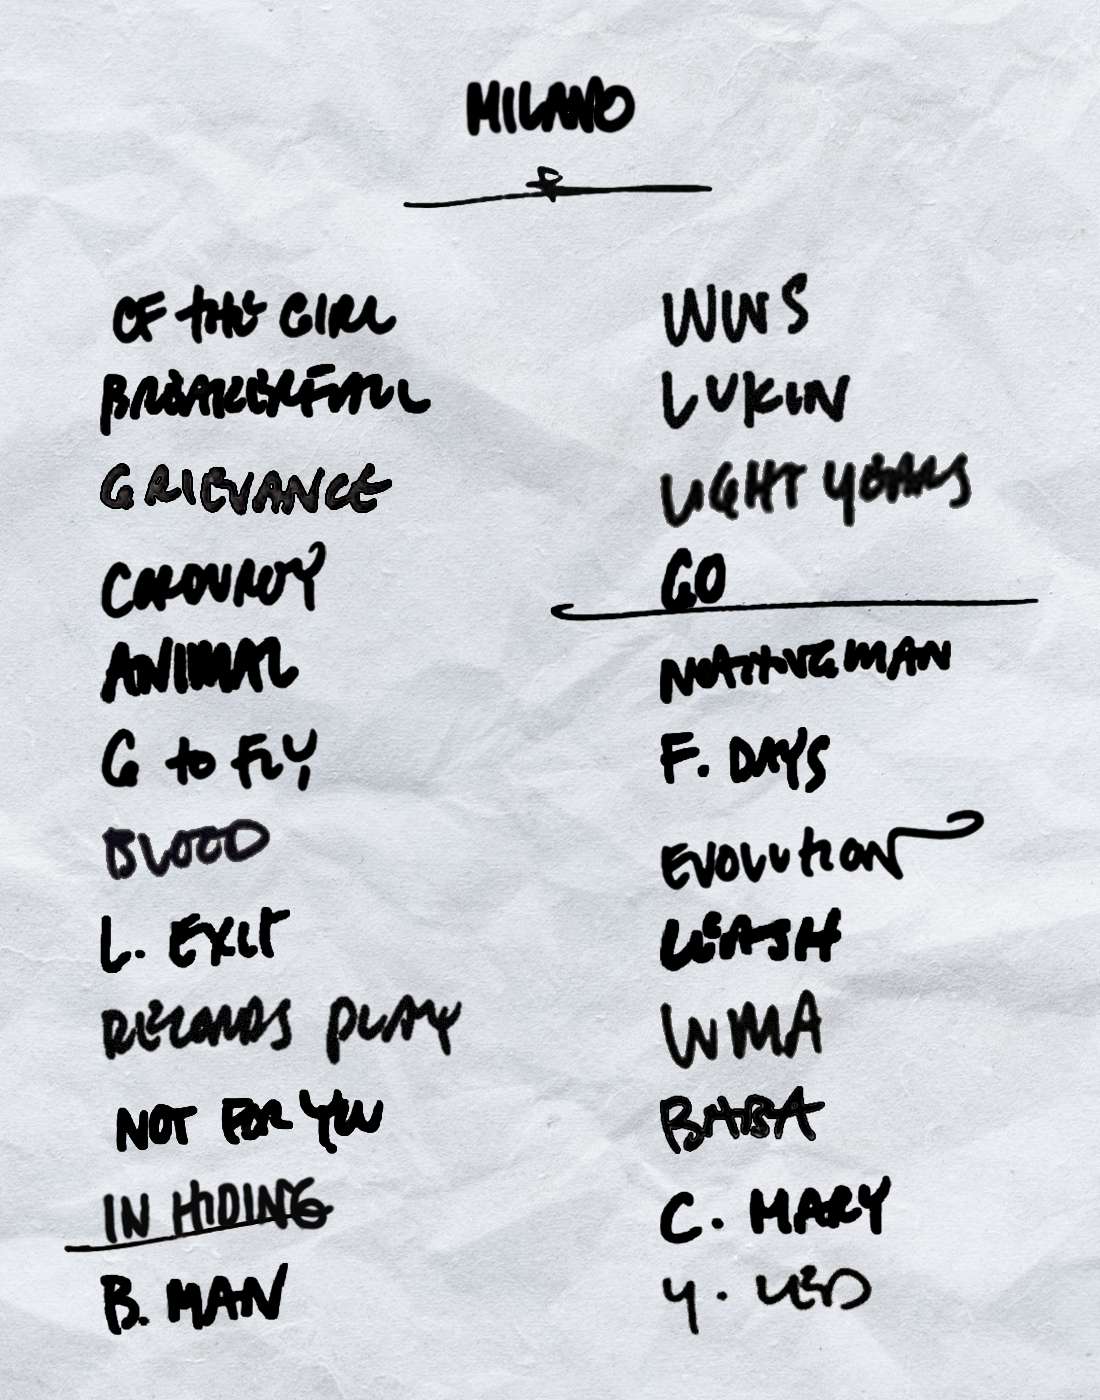 MILANO
OF THE GIRL
BREAKERFALL
GRIEVANCE
CORDUROY
ANIMAL
G TO FLY
BLOOD
L. EXIT
RECORDS PLAY
NOT FOR YOU
IN HIDING
B. MAN
WWS
LUKIN
LIGHT YEARS
GO
NOTHINGMAN
F. DAYS
EVOLUTION
LEASH
WMA
BABA
C. MARY
Y. LED